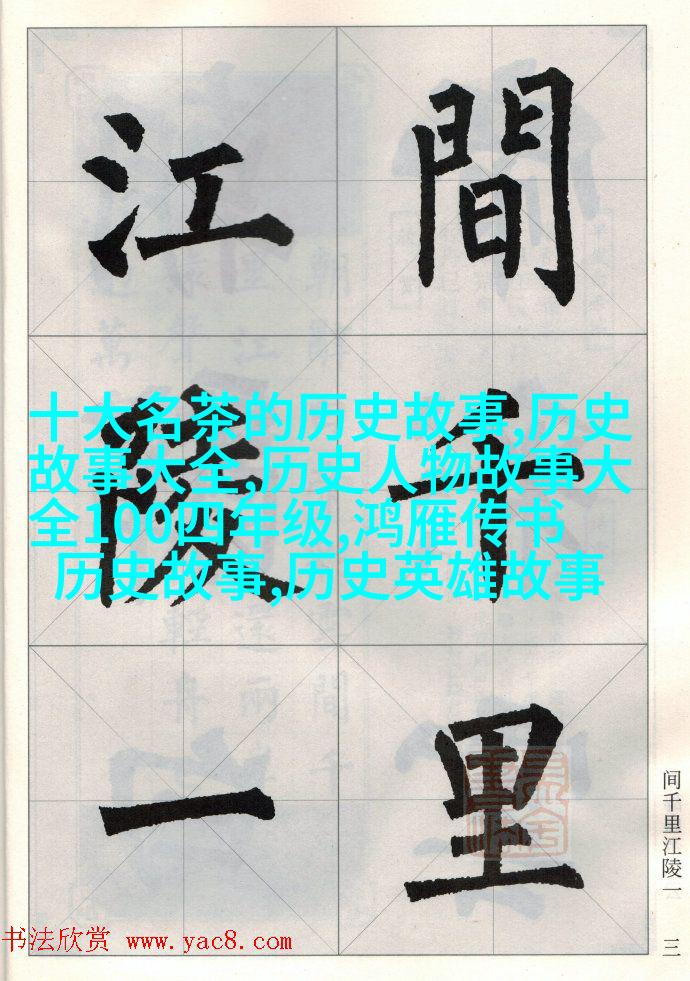 間
千
里
江
陵
一
十大名茶的历史故事,历史
故事大全,历史人物故事大
全100四年级,鸿雁传书
历史故事,历史英雄故事
间千里江陵一
三
书法欣赏 www.yac8.com